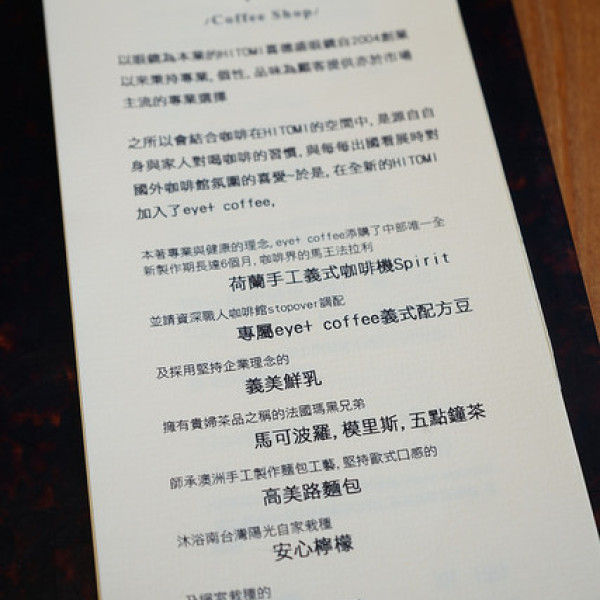 /Coffee Shop/
以眼鏡為本業的HITOMI喜德盛眼鏡自2004創業
以來秉持專業, 個性, 品味為顧客提供亦於市場
主流的專業選擇
之所以會結合咖啡在HITOMI的空間中, 是源自自
身與家人對喝咖啡的習慣, 與每每出國看展時對
國外咖啡館氛圍的喜愛~於是, 在全新的HITOMI
加入了eye+ coffee,
本著專業與健康的理念, eye+ coffee添購了中部唯一全
新製作期長達6個月, 咖啡界的馬王法拉利
荷蘭手工義式咖啡機Spirit
並請資深職人咖啡館stopover調配
專屬eye+ coffee義式配方豆
及採用堅持企業理念的
義美鮮乳
擁有貴婦茶品之稱的法國瑪黑兄弟
馬可波羅, 模里斯, 五點鐘茶
師承澳洲手工製作麵包工藝, 堅持歐式口感的
高美路麵包
沐浴南台灣陽光自家栽種
安心檸檬
及網室栽種的